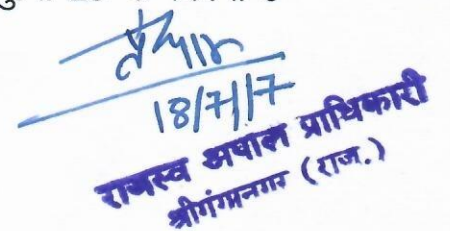 18/7/17
राजस्व अपील प्राधिकारी
श्रीगंगानगर (राज.)